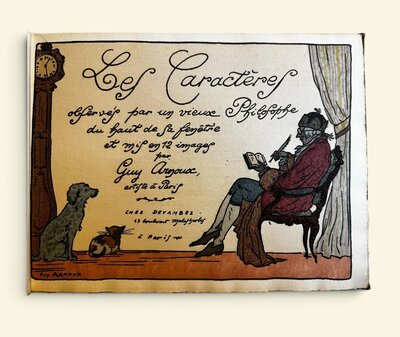 Les Caractères
observés par un vieux Philosophe
du haut de sa fenêtre
et mis en 12 images
par
Guy Arnoux,
artiste à Paris
CHEZ DEVAMBEZ.
43 boulevard Malesherbes
à Paris
Guy ARNOUX